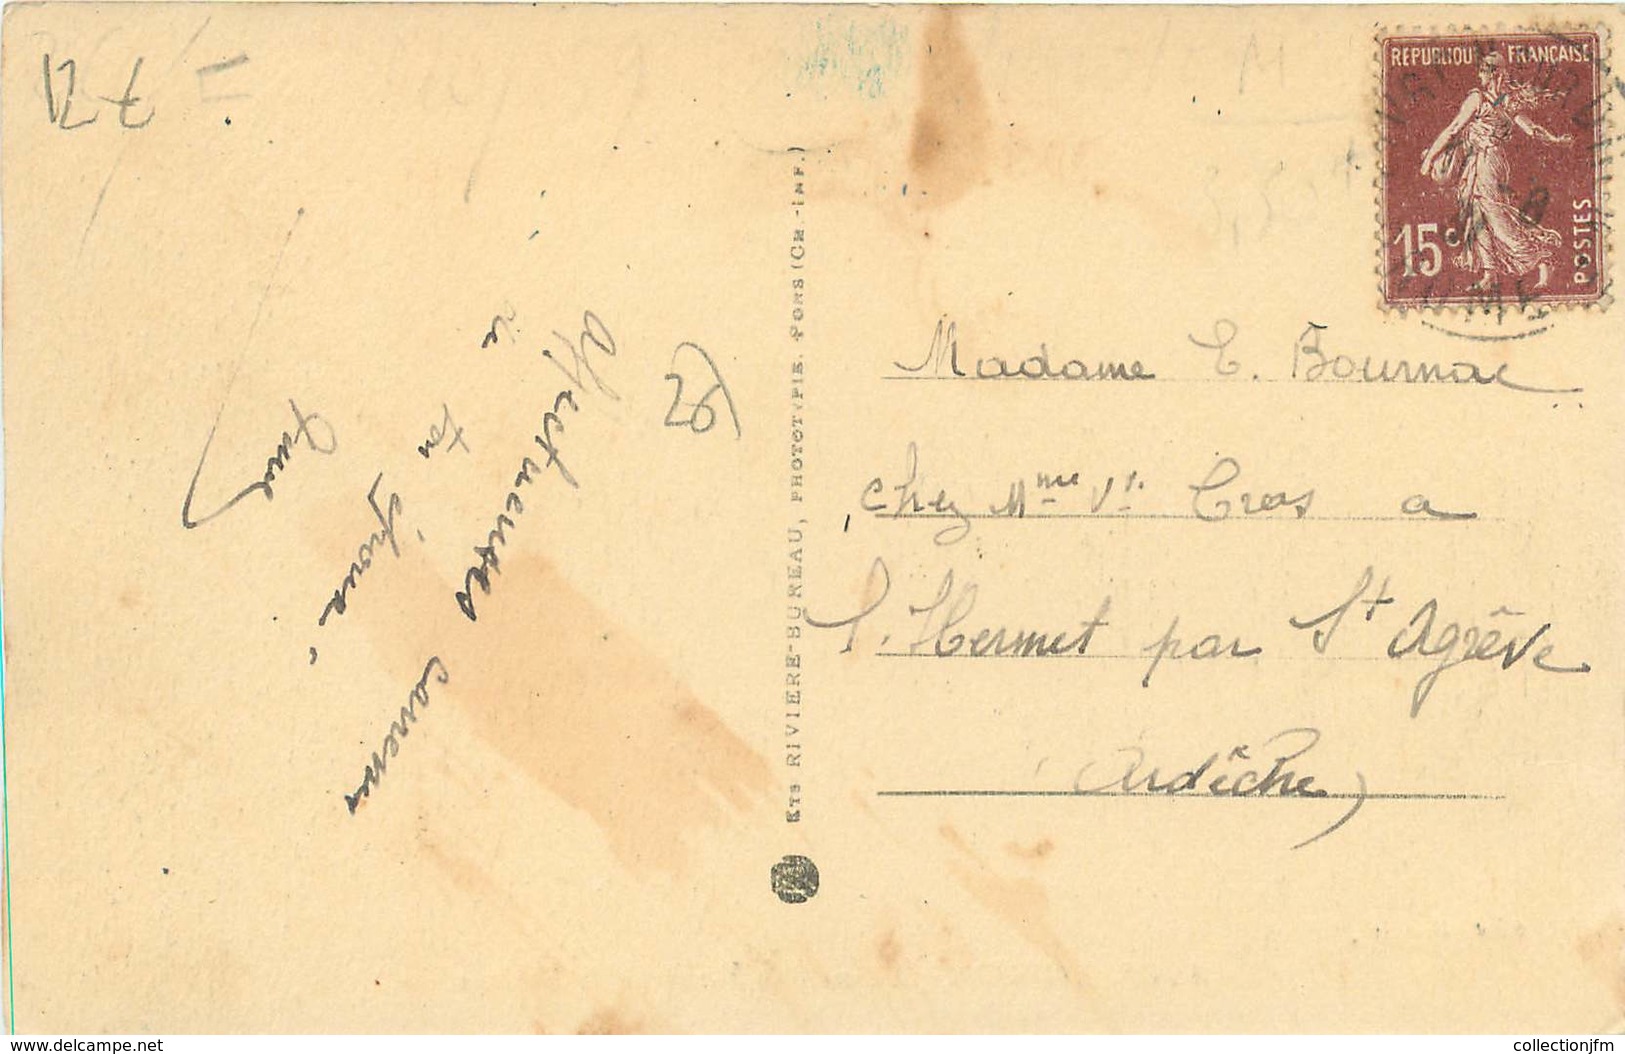 12 €
Affectueuses caresses
de
ton
(26)
ETS RIVIERE-BUREAU, PHOTOTYPIE, PONS (CH.-INF.)
REPUBLIQUE FRANÇAISE
15c
POSTES
Madame E. Bournac
chez Mme Vve Cros a
l'Hermet par St Agrève
(Ardèche)
www.delcampe.net
collectionjfm